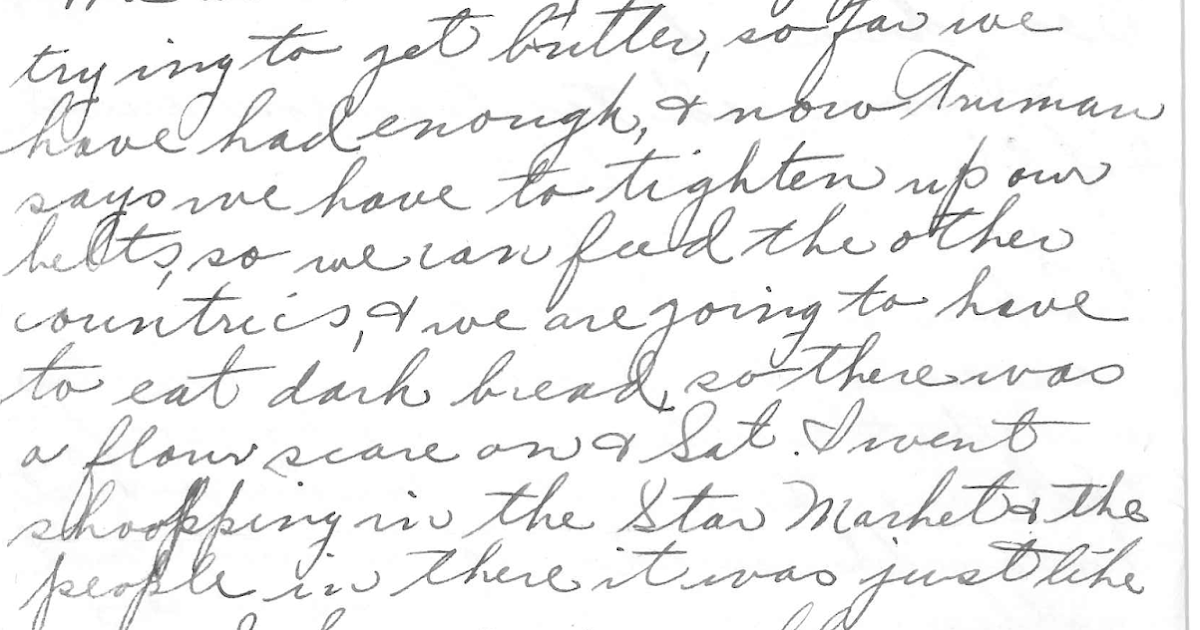 trying to get butter, so far we
have had enough, & now Truman
says we have to tighten up our
belts, so we can feed the other
countries, & we are going to have
to eat dark bread, so there was
a flour scare on & Sat. I went
shoopping in the Star Market & the
people in there it was just like